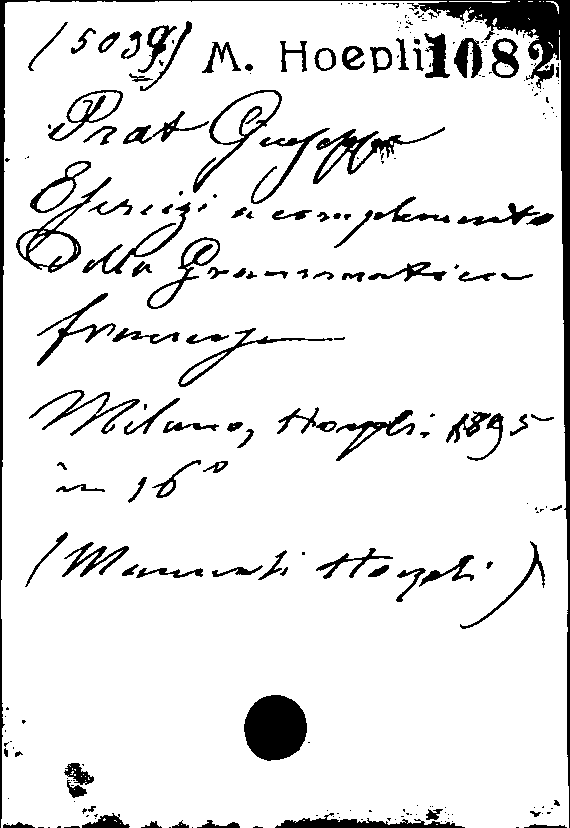 (5039) M. Hoepli 1082
Prat Giuseppe
Esercizi a complemento
Della Grammatica
francese
Milano, Hoepli. 1895
in 16°
(Manuali Hoepli)